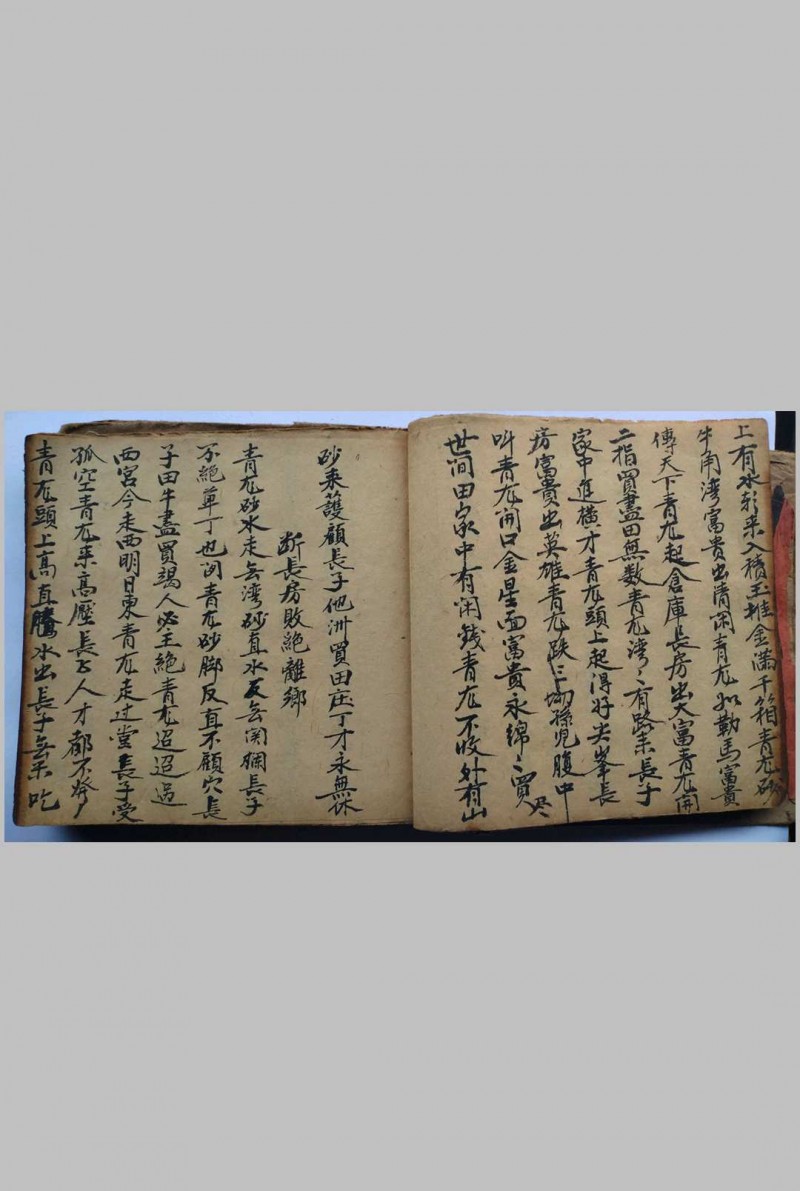 上有水朝来入積玉堆金滿千箱青尨砂
牛角湾富貴出清闲青尨如勒馬富貴
傳天下青尨起倉庫長房出大富青尨開
二指買盡田無数青尨湾〻有路来長子
家中進横才青尨頭上起得好尖峯長
房富貴出英雄青尨跌〻上拗孫児腹中
叫青尨開口金星面富貴永綿〻買尽
世间田家中有闲銭青尨不收外有山
砂来護顧長子他洲買田庄丁才永無休
断長房敗絶離鄉
青尨砂水走无湾砂直水反无関欄長子
不絶草丁也问青尨砂脚反直不顧穴長
子田牛盡買竭人必主絶青尨迢迢過
西宮今走西明日東青尨走过堂長子受
孤空青尨来高壓長子人才都不發
青尨頭上高直騰水出長子無来吃